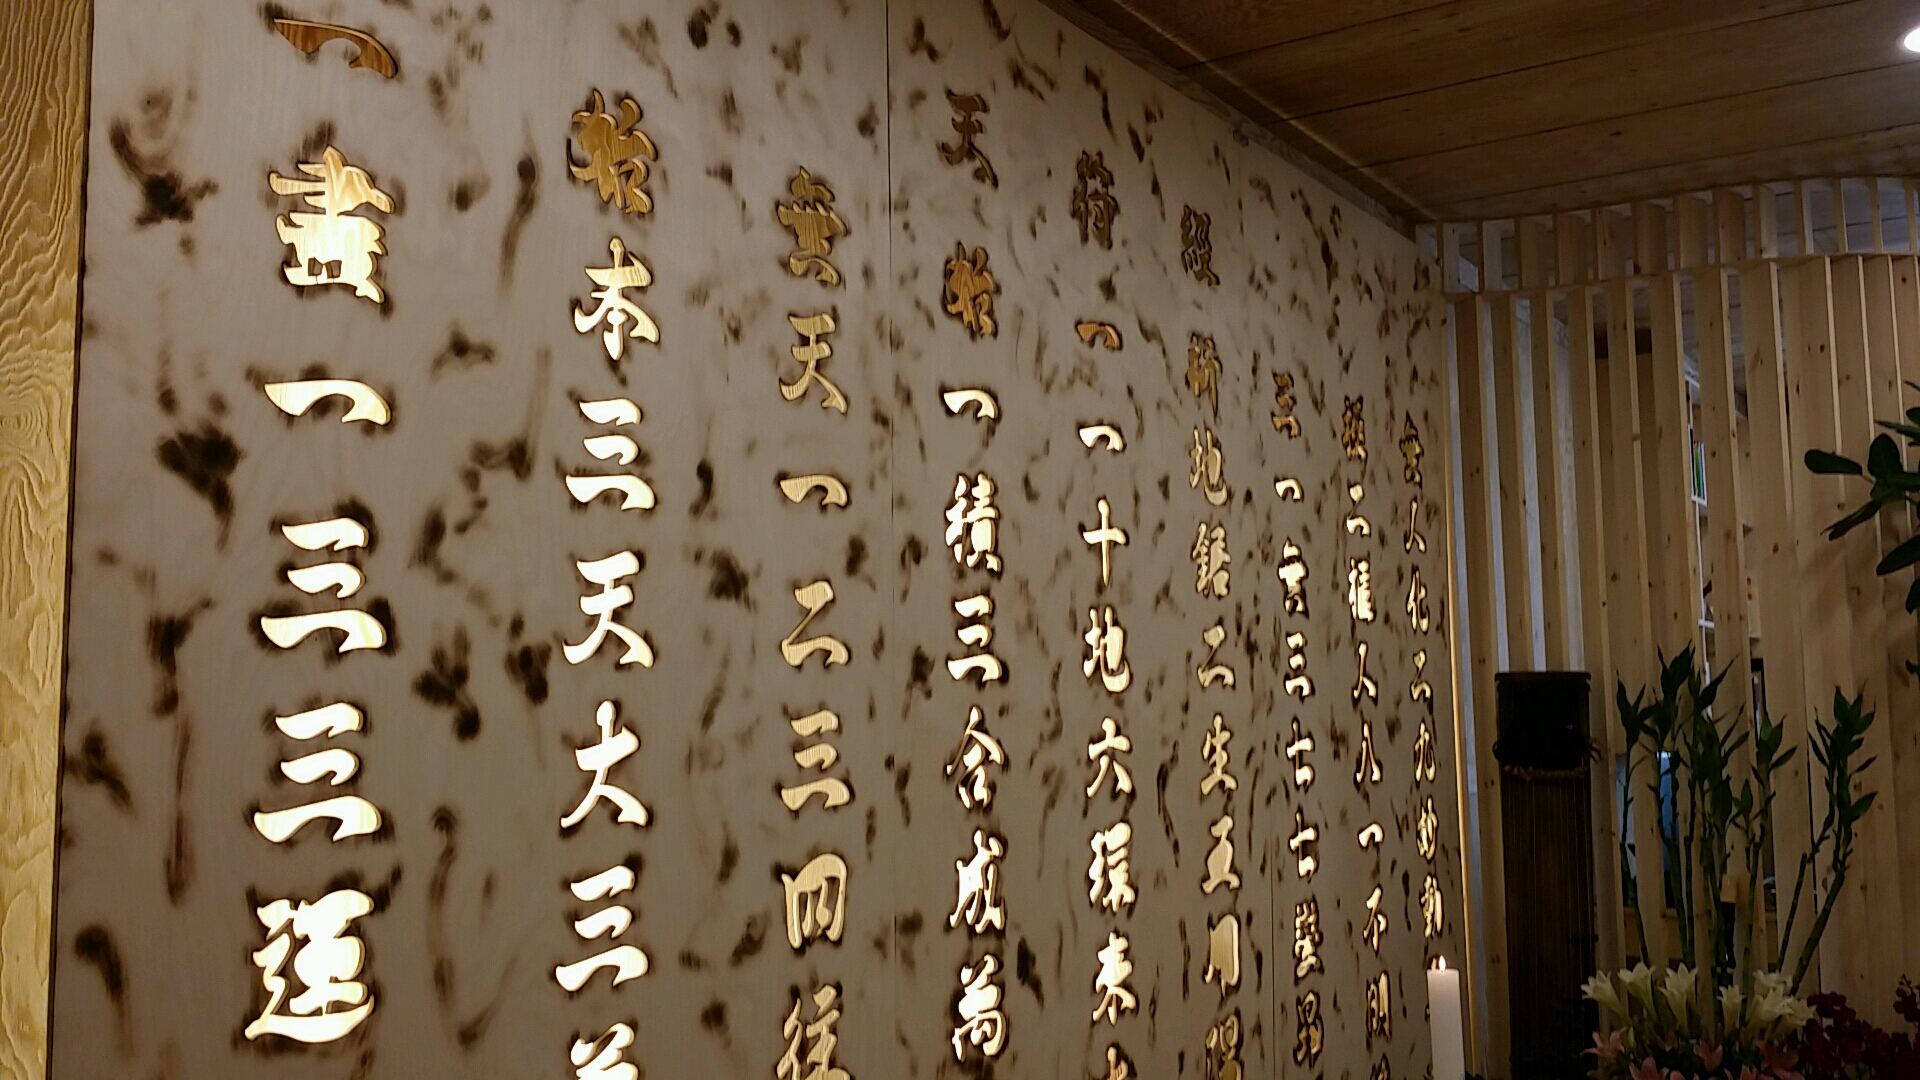 天符經
一始無始一析三極無
盡本天一一地一二人
一三一積十鋸無櫃化
三天二三地二三人二
三大三合六生七八九
運三四成環五七一妙
萬往萬來用變不動
陽昻明